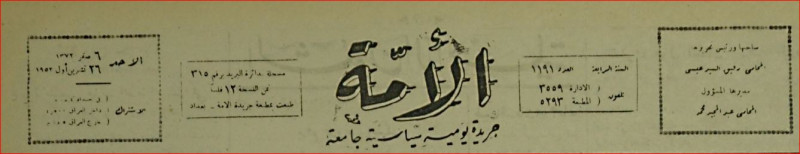 صاحبها ورئيس تحريرها
المحامي رفيق السيد عيسى
مديرها المسؤول
المحامي عبد المجيد محمد
السنة الرابعة العدد ١١٩١
تلفون ( الادارة ٣٥٥٩
( المطبعة ٥٢٩٣
الأمة
جريدة يومية سياسية جامعة
مسجلة بدائرة البريد برقم ٣١٥
ثمن النسخة ١٢ فلسا
طبعت بمطبعة جريدة الامة - بغداد
الاحد ٦ صفر ١٣٧٢
٢٦ تشرين اول ١٩٥٢
الاشتراك
( في بغداد
داخل العراق
( خارج العراق